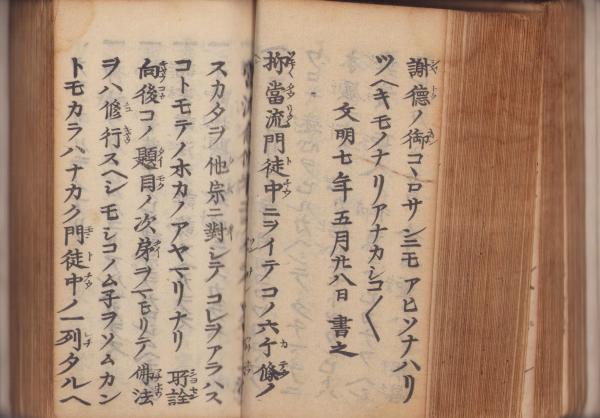 謝德ノ御コヽロサシニモアヒソナハリ
ツヘキモノナリアナカシコ〳〵
文明七年五月廿八日書之
抑當流門徒中ニヲイテコノ六ケ條ノ
スカタヲ他宗ニ對シテコレヲアラハス
コトモテノホカノアヤマリナリ所詮
向後コノ題目ノ次弟ヲマモリテ佛法
ヲハ修行スヘシモシコノムネヲソムカン
トモカラハナカク門徒中ノ一列タルヘ